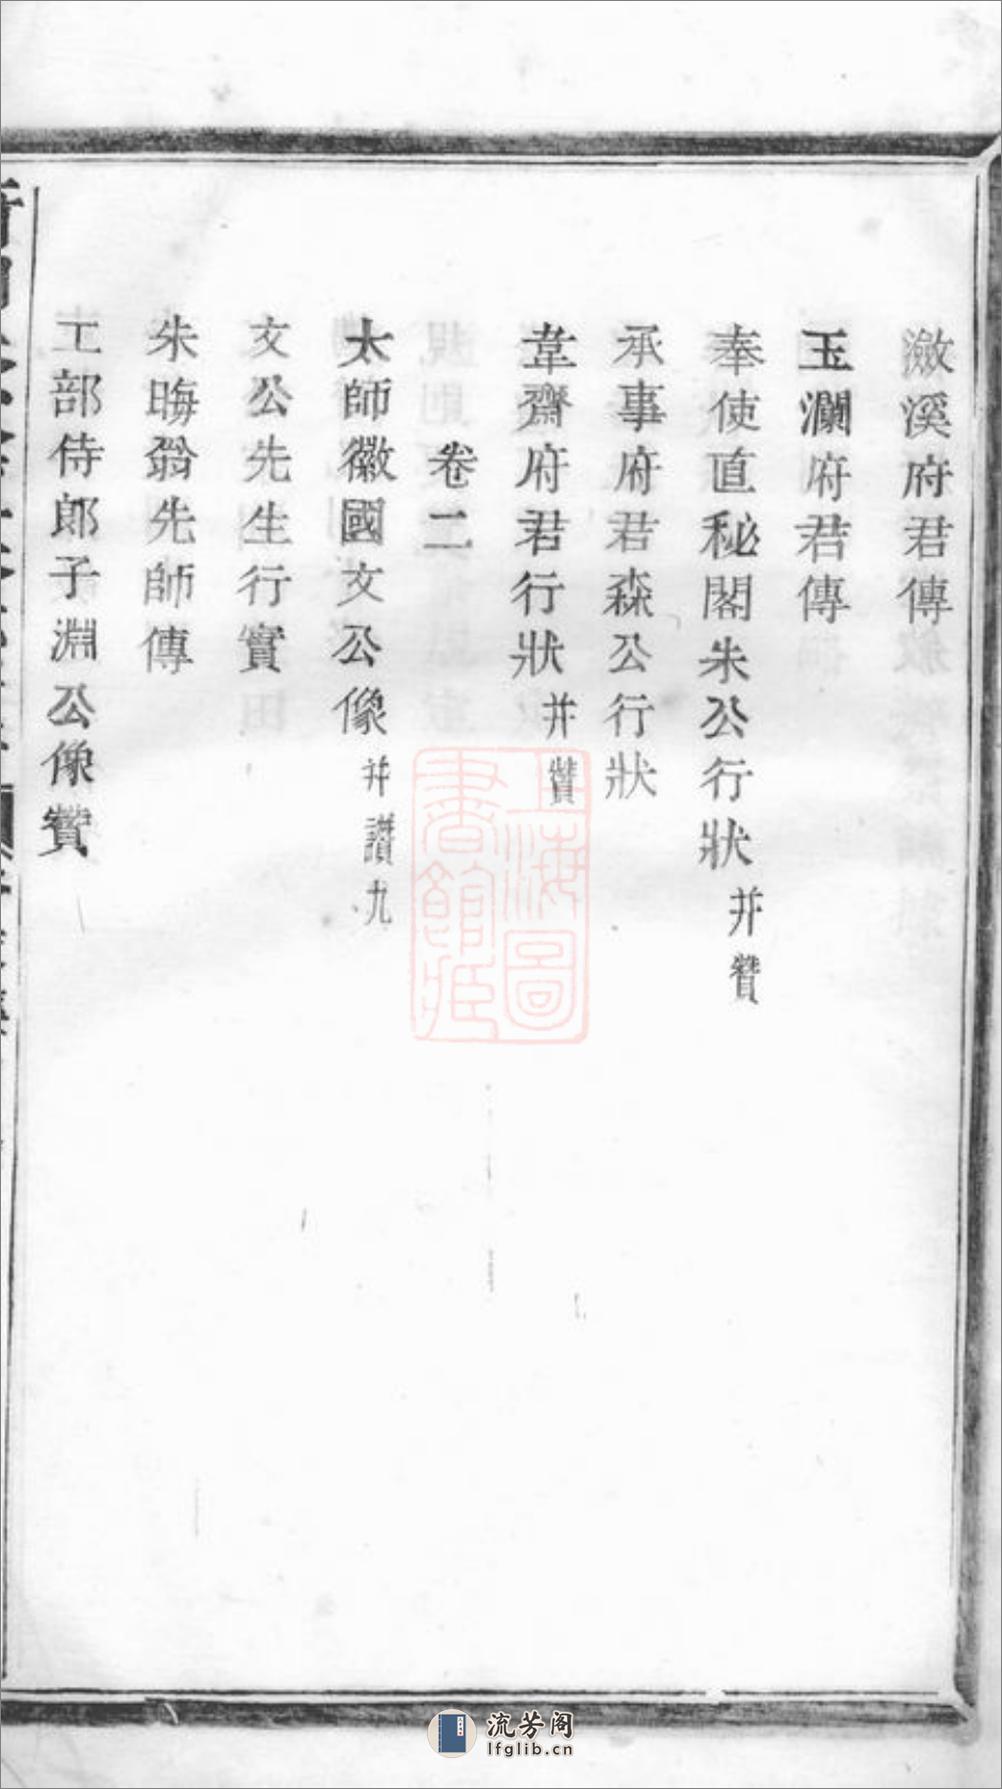 潋溪府君傳
玉瀾府君傳
奉使直秘閣朱公行狀并贊
承事府君森公行狀
韋齋府君行狀并贊
卷二
太師徽國文公像并讃九
文公先生行實
朱晦翁先師傳
工部侍郎子淵公像贊
上海圖書館藏
流芳阁
lfglib.cn